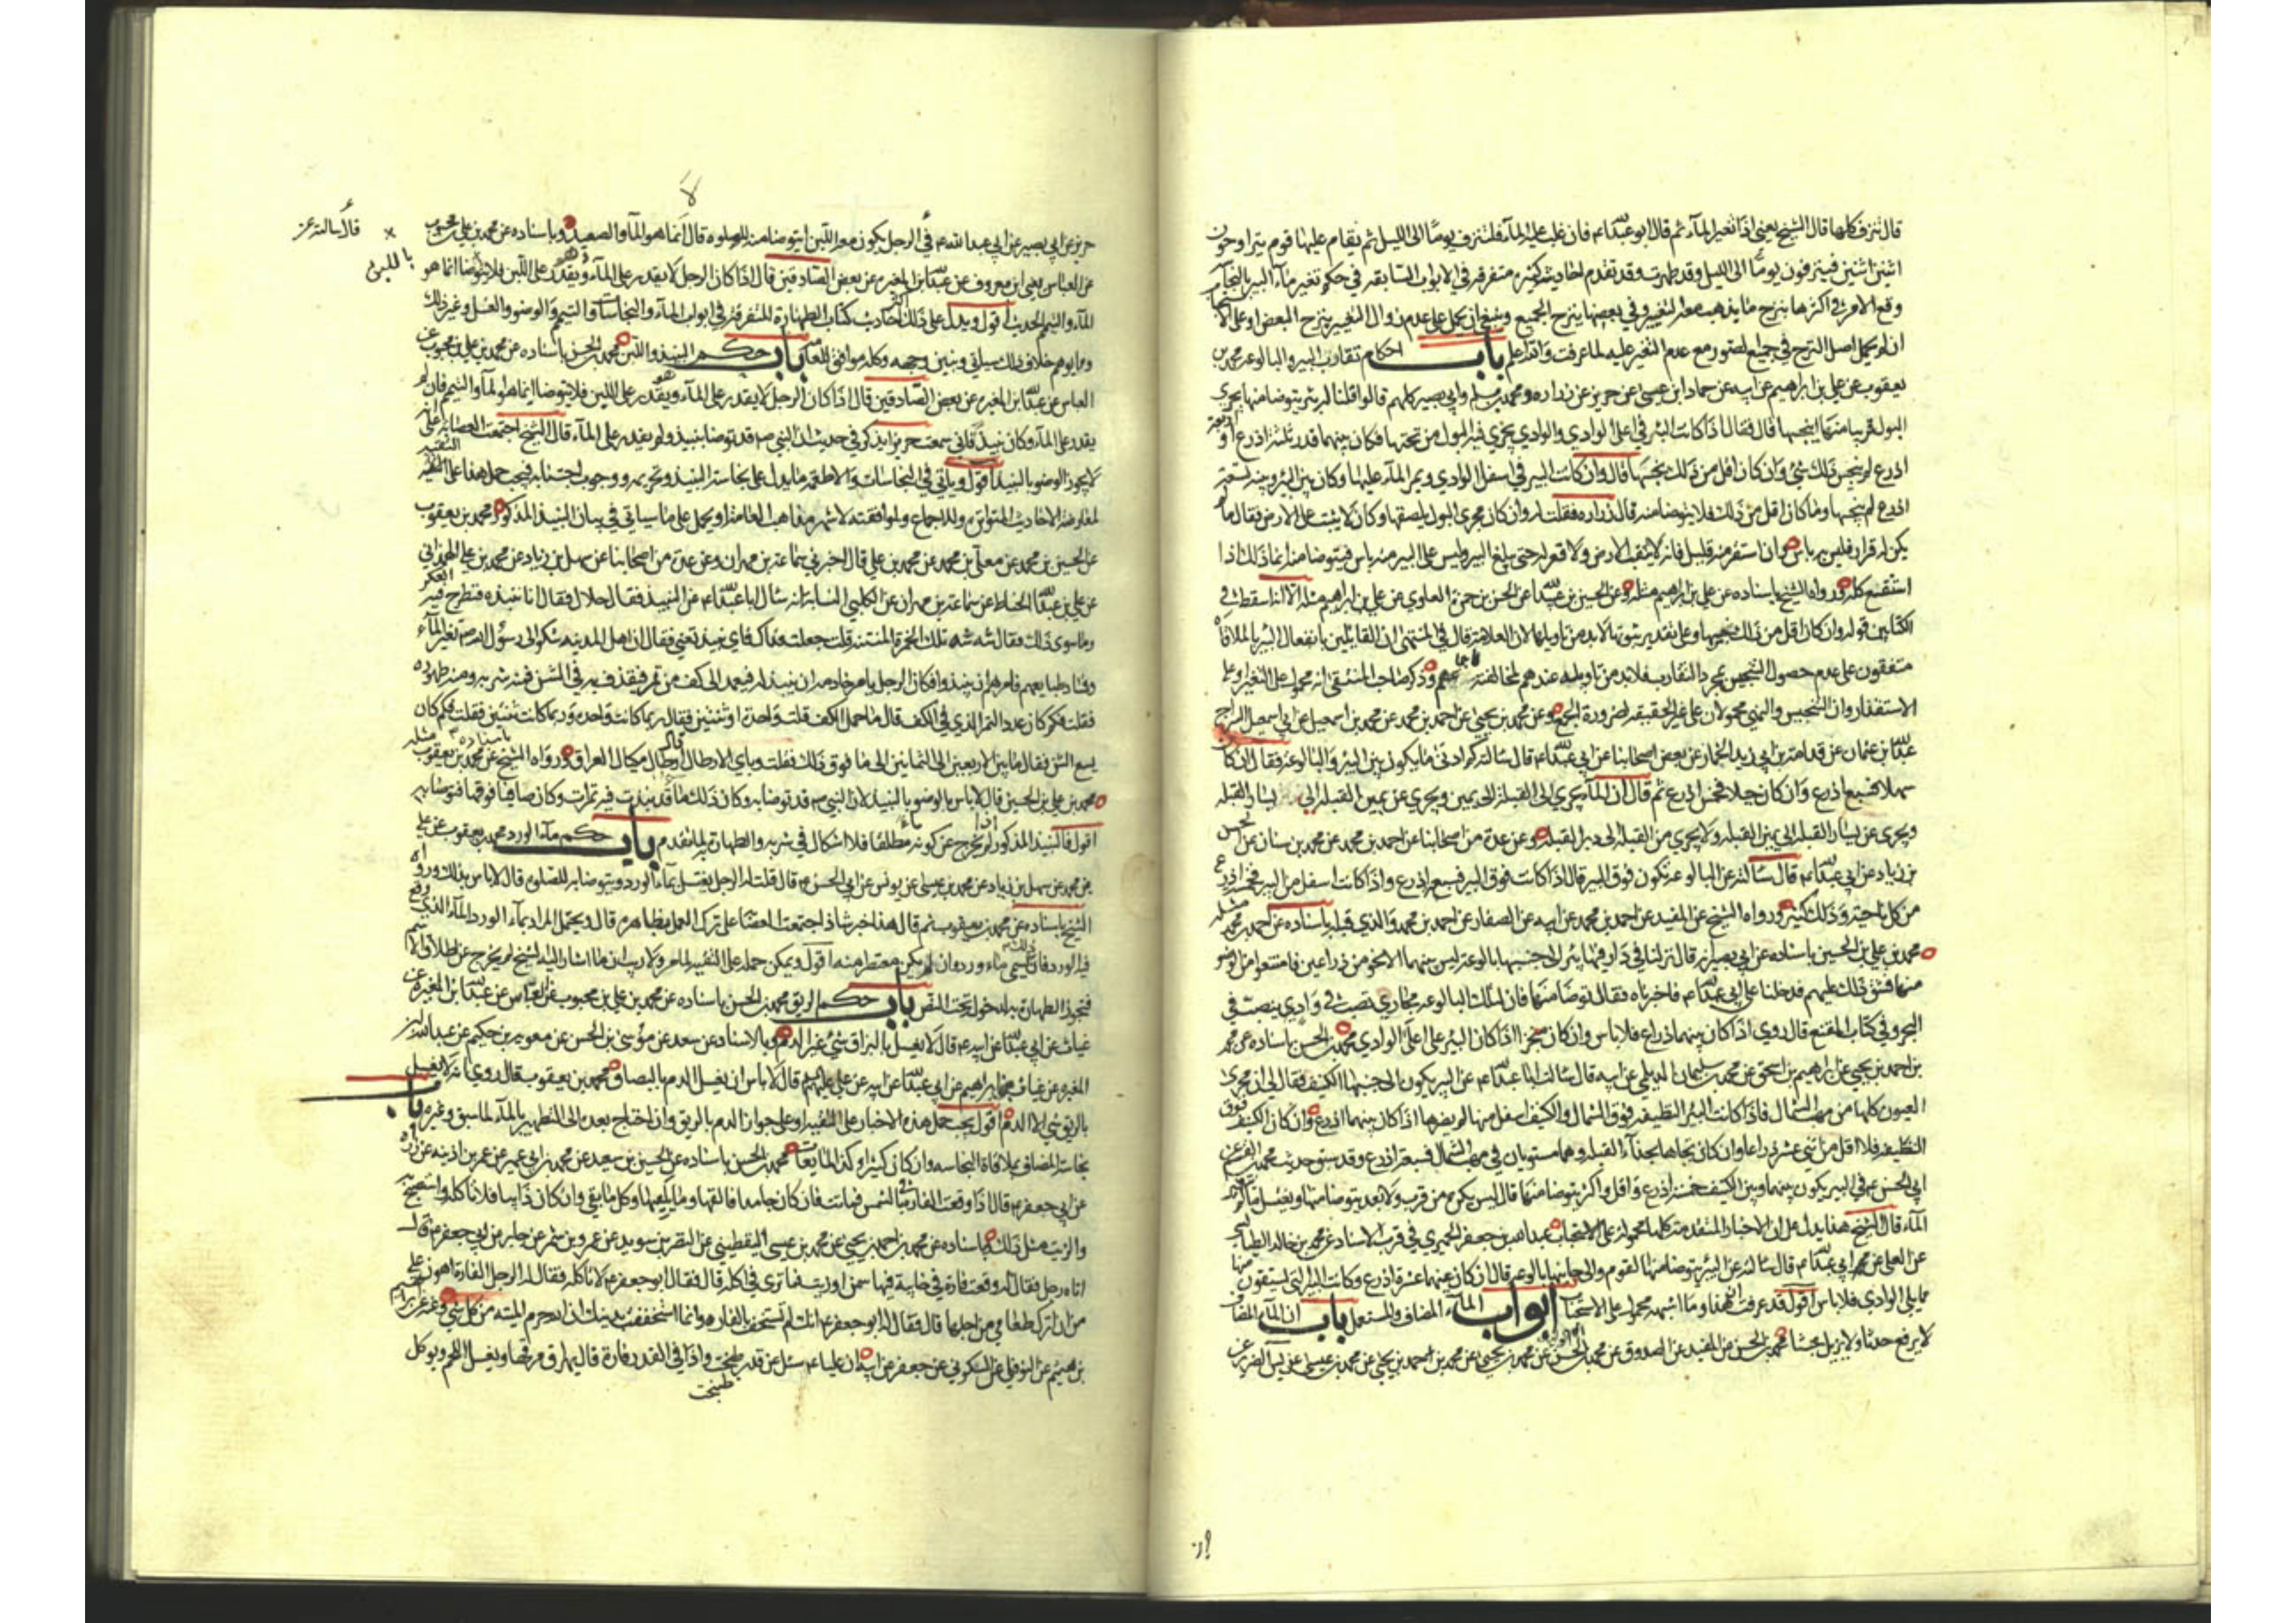 قال تنزف كلها قال الشيخ يعنى اذا تغير الماء ثم قال ابو عبدالله ع فان غلب عليه الماء فلتنزف يوما الى الليل ثم يقام عليها قوم يتراوحون
اثنين اثنين فينزفون يوما الى الليل وقد طهرت وقد تقدم احاديث كثيرة متفرقة في الابواب السابقة في حكم تغير ماء البير بالنجاسة
وقع الامر في اكثرها بنزح ما يذهب معه التغير وفي بعضها بنزح الجميع وينبغي ان يحمل على عدم زوال التغير بنزح البعض او على الاستحباب
ان لم يحمل اصل النزح في جميع الصور مع عدم التغير عليه لما عرفت والله اعلم باب احكام تقارب البير والبالوعة محمد بن
يعقوب عن علي بن ابراهيم عن ابيه عن حماد ابن عيسى عن حريز عن زرارة ومحمد بن مسلم وابي بصير كلهم قالوا قلنا له بئر يتوضا منها يجري
البول قريبا منها اينجسها قال فقال اذا كانت البئر في اعلى الوادي والوادي يجري فيه البول من تحتها فكان بينهما قدر ثلثة اذرع او اربعة
اذرع لم ينجس ذلك شئ وان كان اقل من ذلك نجسها قال وان كانت البير في اسفل الوادي ويمر الماء عليها وكان بين البئر وبينه تسعة
اذرع لم ينجسها وما كان اقل من ذلك فلا يتوضا منه قال زرارة فقلت له وان كان مجرى البول يلصقها وكان لا يثبت على الارض فقال ما لم
يكن له قرار فليس به باس وان استقر منه قليل فانه لا يثقب الارض ولا قعر له حتى يبلغ البير وليس على البير منه باس فيتوضا منه انما ذلك اذا
استنقع كله ورواه الشيخ باسناده عن علي بن ابراهيم مثله وعن الحسين بن عبيدالله عن الحسن بن حمزة العلوي عن علي بن ابراهيم مثله الا انه اسقط في
الكتابين قوله وان كان اقل من ذلك نجسها وعلى تقدير ثبوتها لا بد من تاويلها لان العلامة قال في المنتهى ان القائلين بانفعال البير بالملاقاة
متفقون على عدم حصول التنجيس بمجرد التقارب فلا بد من تاويله عندهم لمخالفته اجماعهم وذكر صاحب المنتقى انه محمول على التغير او على
الاستقذار وان التنجيس والنهي محمولان على غير الحقيقة لضرورة الجمع وعن محمد بن يحيى عن احمد بن محمد عن محمد بن اسمعيل عن ابي اسمعيل السراج
عبدالله بن عثمان عن قدامة بن ابي زيد الجمار عن بعض اصحابنا عن ابي عبدالله ع قال سالته كم ادنى ما يكون بين البير والبالوعة فقال ان كان
سهلا فسبع اذرع وان كان جبلا فخمس اذرع ثم قال ان الماء يجري الى القبلة الى يمين ويجري عن يمين القبلة الى يسار القبلة
ويجري عن يسار القبلة الى يمين القبلة ولا يجري من القبلة الى دبر القبلة وعن عدة من اصحابنا عن احمد بن محمد عن محمد بن سنان عن الحسن
بن رباط عن ابي عبدالله ع قال سالته عن البالوعة تكون فوق البير قال اذا كانت فوق البير فسبع اذرع واذا كانت اسفل من البير فخمسة اذرع
من كل ناحية وذلك كثير ورواه الشيخ عن المفيد عن احمد بن محمد عن ابيه عن الصفار عن احمد بن محمد والذي قبله باسناده عن احمد بن محمد مثله
محمد بن علي بن الحسين باسناده عن ابي بصير انه قال نزلنا في دار فيها بئر الى جنبها بالوعة ليس بينهما الا نحو من ذراعين فامتنعوا من الوضوء
منها فشق ذلك عليهم فدخلنا على ابي عبدالله ع فاخبرناه فقال توضا منها فان لتلك البالوعة مجاري تصب في وادي ينصب في
البحر وفي كتاب المقنع قال روي اذا كان بينهما ذراع فلا باس وان كان مبخرا اذا كان البئر على اعلى الوادي محمد بن الحسن باسناده عن محمد
بن احمد بن يحيى عن ابراهيم بن اسحق عن محمد بن سليمان الديلمي عن ابيه قال سالت ابا عبدالله ع عن البير يكون الى جنبها الكنيف فقال لي ان مجرى
العيون كلها من مهب الشمال فاذا كانت البئر النظيفة فوق الشمال والكنيف اسفل منها لم يضرها اذا كان بينهما اذرع وان كان الكنيف فوق
النظيفة فلا اقل من اثنى عشر ذراعا وان كان تجاها بحذاء القبلة وهما مستويان في مهب الشمال فسبعة اذرع وقد سبق حديث محمد بن القسم عن
ابي الحسن ع في البير يكون بينها وبين الكنيف خمسة اذرع واقل واكثر يتوضا منها قال ليس يكره من قرب ولا بعد يتوضا منها ويغتسل ما لم يتغير
الماء قال الشيخ هذا يدل على ان الاخبار المتقدمة كلها محمولة على الاستحباب عبدالله بن جعفر الحميري في قرب الاسناد عن محمد بن خالد الطيالسي
عن العلا عن ابي عبدالله ع قال سالته عن البئر يتوضا منها القوم والى جانبها بالوعة قال ان كان بينهما عشرة اذرع وكانت البير التي يستقون منها
مما يلي الوادي فلا باس اقول قد عرفت ان هذا وما اشبهه محمول على الاستحباب ابواب الماء المضاف والمستعمل باب ان الماء المضاف
لا يرفع حدثا ولا يزيل خبثا محمد بن الحسن عن المفيد عن الصدوق عن محمد بن الحسن عن محمد بن يحيى عن محمد بن احمد بن يحيى عن محمد بن عيسى عن يس الضرير عن
حريز عن ابي بصير عن ابي عبدالله ع في الرجل يكون معه اللبن ايتوضا منه للصلوة قال لا انما هو الماء والصعيد وباسناده عن محمد بن علي بن محبوب
عن العباس يعني ابن معروف عن عبدالله بن المغيرة عن بعض الصادقين قال اذا كان الرجل لا يقدر على الماء وهو يقدر على اللبن فلا يتوضا انما هو
الماء والتيمم الحديث اقول ويدل على ذلك احاديث كتاب الطهارة المتفرقة في ابواب الماء والنجاسات والتيمم والوضوء والغسل وغير ذلك
وما يوهم خلاف ذلك سياتي ونبين وجهه وكله موافق للعامة باب حكم النبيذ واللبن محمد بن الحسن باسناده عن محمد بن علي بن محبوب عن
العباس عن عبدالله بن المغيرة عن بعض الصادقين قال اذا كان الرجل لا يقدر على الماء وهو يقدر على اللبن فلا يتوضا انما هو الماء والتيمم فان لم
يقدر على الماء وكان نبيذ فاني سمعت حريزا يذكر في حديث ان النبي ص قد توضا بنبيذ ولم يقدر على الماء قال الشيخ اجتمعت العصابة على انه
لا يجوز الوضوء بالنبيذ اقول وياتي في النجاسات والاطعمة ما يدل على نجاسة النبيذ وتحريمه ووجوب اجتنابه فيجب حمل هذا على التقية
لمعارضة الاحاديث المتواترة وللاجماع ولموافقته لاشهر مذاهب العامة او يحمل على ما سياتي في بيان النبيذ المذكور محمد بن يعقوب
عن الحسين بن محمد عن معلى بن محمد عن محمد بن علي قال اخبرني سماعة بن مهران وعن عدة من اصحابنا عن سهل بن زياد عن محمد بن علي الهمداني
عن علي بن عبدالله الحناط عن سماعة بن مهران عن الكلبي النسابة انه سال ابا عبدالله ع عن النبيذ فقال حلال فقال انا ننبذه فنطرح فيه العكر
وما سوى ذلك فقال شه شه تلك الخمرة المنتنة قلت جعلت فداك فاي نبيذ تعني فقال ان اهل المدينة شكوا الى رسول الله ص تغير الماء
وفساد طبايعهم فامرهم ان ينبذوا فكان الرجل يامر خادمه ان ينبذ له فيعمد الى كف من تمر فيقذف به في الشن فمنه شربه ومنه طهوره
فقلت فكم كان عدد التمر الذي في الكف قال ما حمل الكف قلت واحدة او ثنتين فقال ربما كانت واحدة وربما كانت ثنتين فقلت فكم كان
يسع الشن فقال ما بين الاربعين الى الثمانين الى ما فوق ذلك فقلت وباي الارطال قال ارطال مكيال العراق ورواه الشيخ باسناده عن محمد بن يعقوب مثله
محمد بن علي بن الحسين قال لا باس بالوضوء بالنبيذ لان النبي ص قد توضا به وكان ذلك ماء قد نبذت فيه تمرات وكان صافيا فوقها فتوضا به
اقول فالنبيذ المذكور لم يخرج عن كونه ماء مطلقا فلا اشكال في شربه والطهارة به لما تقدم باب حكم ماء الورد محمد بن يعقوب عن علي
بن محمد عن سهل بن زياد عن محمد بن عيسى عن يونس عن ابي الحسن ع قال قلت له الرجل يغتسل بماء الورد ويتوضا به للصلوة قال لا باس بذلك ورواه
الشيخ باسناده عن محمد بن يعقوب ثم قال هذا خبر شاذ اجتمعت العصابة على ترك العمل بظاهره قال ويحتمل المراد بماء الورد الماء الذي وقع
فيه الورد فان ذلك يسمى ماء ورد وان لم يكن معتصرا منه اقول ويمكن حمله على التقية لما مر ولا ريب ان ما اشار اليه الشيخ لم يخرج عن اطلاق الاسم
فتجوز الطهارة به لدخوله تحت النص باب حكم الريق محمد بن الحسن باسناده عن محمد بن علي بن محبوب عن العباس عن عبدالله بن المغيرة عن
غياث عن ابي عبدالله عن ابيه ع قال لا يغسل بالبزاق شئ غير الدم وبالاسناد عن سعد عن موسى بن الحسن عن معوية بن حكيم عن عبدالله بن
المغيرة عن غياث بن ابراهيم عن ابي عبدالله عن ابيه عن علي عليهم قال لا باس ان يغسل الدم بالبصاق محمد بن يعقوب قال روي انه لا يغسل
بالريق شئ الا الدم اقول يجب حمل هذه الاخبار على التقية او على جواز الدم بالريق وان احتاج بعده الى التطهير بالماء لما سبق وغيره باب
نجاسة المضاف بملاقاة النجاسة وان كان كثيرا وكذا المايعات محمد بن الحسن باسناده عن الحسين بن سعيد عن محمد بن ابي عمير عن عمر بن اذينه عن زرارة
عن ابي جعفر ع قال اذا وقعت الفارة في السمن فماتت فان كان جامدا فالقها وما يليها وكل ما بقي وان كان ذايبا فلا تاكله واستصبح به
والزيت مثل ذلك وباسناده عن محمد بن احمد بن يحيى عن محمد بن عيسى اليقطيني عن النضر بن سويد عن عمرو بن شمر عن جابر عن ابي جعفر ع قال
اتاه رجل فقال له وقعت فارة في خابية فيها سمن او زيت فما ترى في اكله قال فقال ابو جعفر ع لا تاكله فقال له الرجل الفارة اهون علي
من ان اترك طعامي من اجلها قال فقال له ابو جعفر ع انك لم تستخف بالفارة وانما استخففت بدينك ان الله حرم الميتة من كل شئ وعنه عن ابراهيم
بن هشيم عن النوفلي عن السكوني عن جعفر عن ابيه ان عليا ع سئل عن قدر طبخت واذا في القدر فارة قال يهراق مرقها ويغسل اللحم ويوكل
طبخت